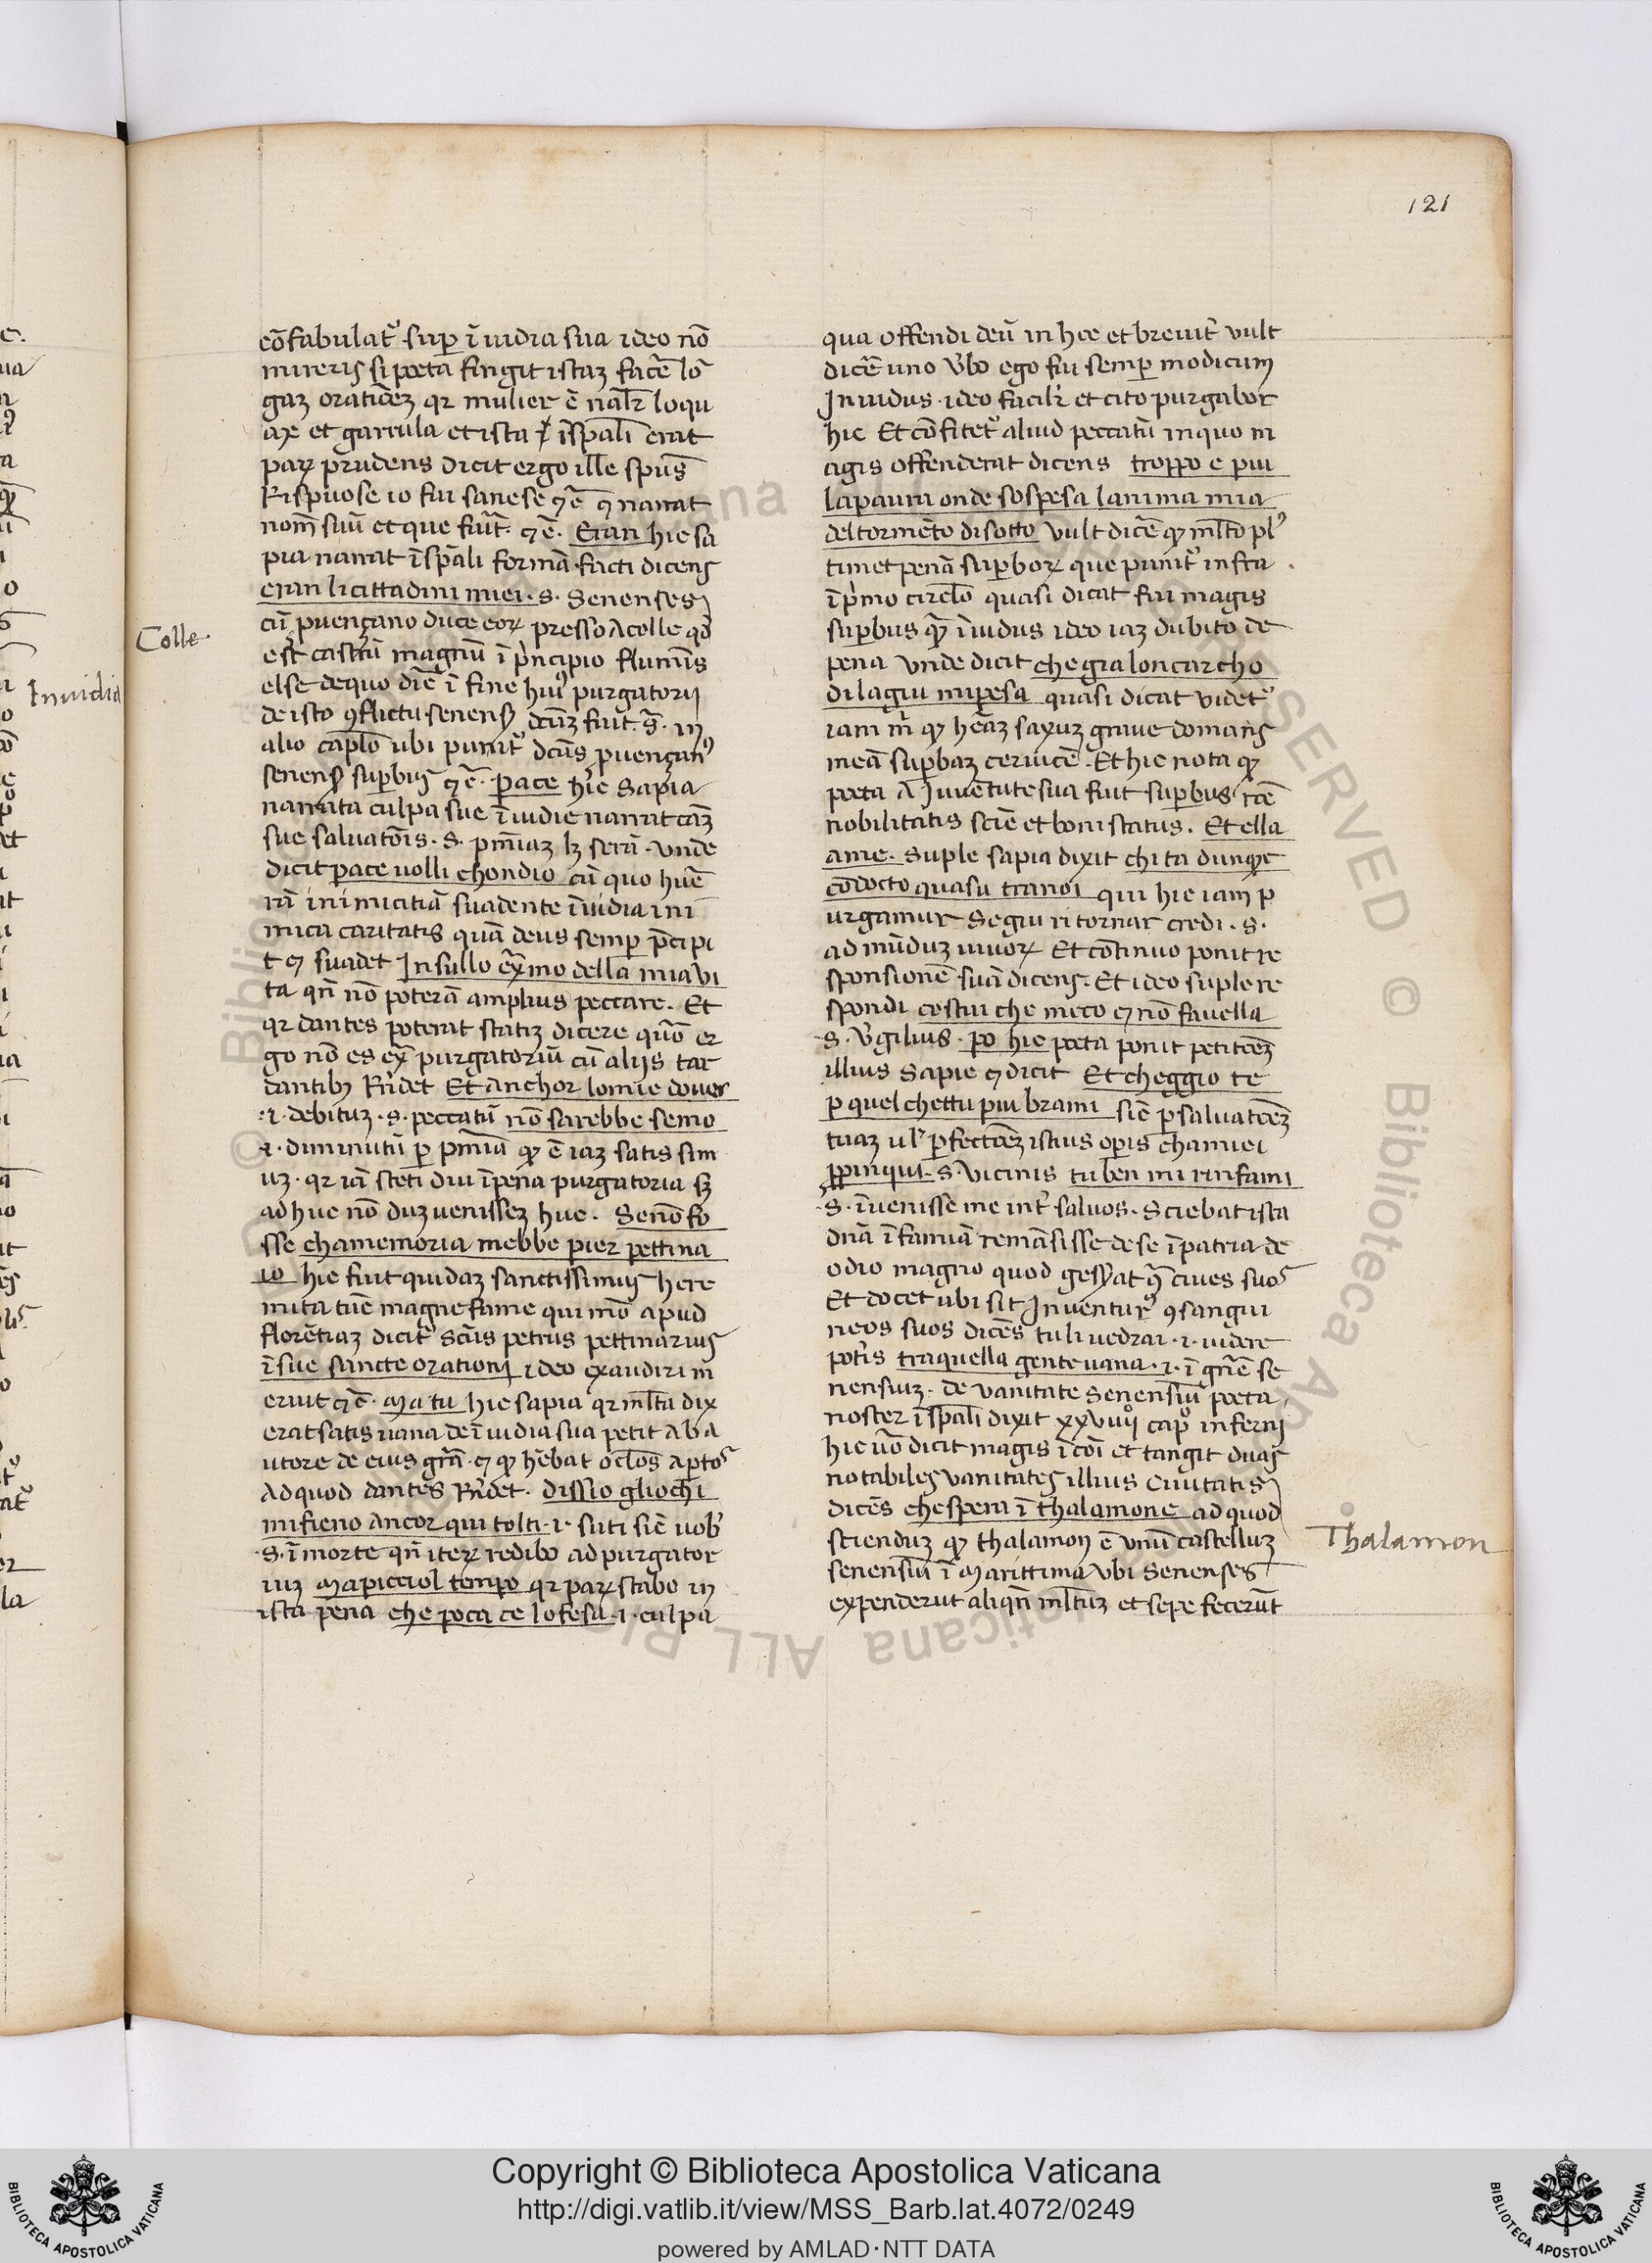 121
cõfabulat᷑ sup ĩuidia sua ideo nõ
mireris si poeta fingit istaz facẽ lõ
gaz oratiõez qr mulier ẽ nal̃r loqu
ax et garrula et ista ĩ sp̃ali erat
paꝝ prudens dicit ergo ille sp̃us
Rispuose io fui sanese ⁊c̃ q narrat
nom̃ suũ et que fuit. ⁊c̃. Eran hic sa
pia narrat ĩsp̃ali formã facti dicens
eran li cittadini miei. s. Senenses
cũ puençano duce eoꝝ presso a colle qd
est castrũ magnũ ĩ pͥncipio fluminis
else de quo dic̃ ĩ fine huiꝰ purgatorij
de isto ꝯflictu senensi dcũz fuit. sͣ. in
alio cap̃lo ubi punit᷑ dcũs puençanꝰ
senensis superbus ⁊c̃. pace hic Sapia
narrata culpa sue ĩuidie narrat cãz
sue saluatõis. s. pñiaz lz será. vnde
dicit pace volli chondio cũ quo hue
rã inimicitiã suadente ĩuidia ini
mica caritatis quã deus semp p̃cipi
t ⁊ suadet In sullo ex̃mo della mia vi
ta qñ nõ poterã amplius peccare. Et
qr dantes poterat statiz dicere quõ er
go nõ es ex̃ purgatoriũ cũ alijs tar
dantibꝰ Rñdet Et anchor lomie douer
.i. debituz. s. peccatũ nõ sarebbe semo
.i. diminutũ p pñiã qꝫ ẽ iaz satis sim
uz. qr iã steti diu ĩ pena purgatoria sz
ad huc nõ duz uenissez huc. Se nõ fo
sse chamemoria mebbe pier pettina
io hic fuit quidaz sanctissimus here
mita tũc magne fame qui mõ apud
florẽtiaz dicit᷑ scũs petrus pettinarius
ĩ sue sancte orationi ideo exaudiri m
eruit ⁊c̃. Ma tu hic sapia qr ml̃ta dix
erat satis uana de ĩuidia sua petit ab a
utore de eius gr̃a. ⁊ qꝫ hẽbat oc̃los aptos
Ad quod dantes Rñdet. dissio gliochi
mi fieno ancor qui tolti .i. suti sic̃ uob̃
.s. ĩ morte qñ iteꝝ redibo ad purgator
iuz Ma picciol tempo qr paꝝ stabo in
ista pena che poca ce lofesa .i. culpa
qua offendi deũ in hoc et breuit᷑ vult
dicẽ uno v̾bo ego fui semp modicum
Inuidus. ideo facilr̃ et cito purgabor
hic Et cõfitet᷑ aliud peccatũ in quo m
agis offenderat dicens troppo e piu
la paura onde sospesa lanima mia
del tormẽto di sotto vult dicẽ qꝫ ml̃to plꝰ
timet penã superboꝝ que punit᷑ infra.
ĩ pͥmo circ̃lo quasi dicat fui magis
supbus qꝫ ĩuidus ideo iaz dubito de
pena vnde dicit che gia loncarcho
di lagiu mi pesa quasi dicat videt᷑
iam m̃ qꝫ hẽaz saxuz graue domans
meã supbaz ceruicẽ. Et hic nota qꝫ
poeta a Juuẽtute sua fuit supbus rõe
nobilitatis sciẽ et boni status. Et ella
a me. Suple sapia dixit chi ta dunqꝫ
cõdocto quasu tra noi qui hic iam p
urgamur Segiu ritornar credi. s.
ad mũduz uiuoꝝ Et cõtinuo ponit re
sponsionẽ suã dicens. Et ideo suple re
spondi costui che meco ⁊ nõ fauella
.s. v̾gilius. po hic poeta ponit petitõez
illius Sapie ⁊ dicit Et cheggio te
p quel chettu piu brami sic̃ p saluatõez
tuaz ul᷑ pfectõez istius opis chamiei
ppinqui. s. vicinis tu ben mi rinfami
.s. ĩuenisse me int᷑ saluos. Sciebat ista
dñã ĩfamiã remãsisse de se ĩ patria de
odio magno quod gesserat ꝯ̃ ciues suos
Et docet ubi sit Inuenturꝰ ꝯsangui
neos suos dicẽs tu li uedrai .i. uidere
pot̾is tra quella gente uana .i. ĩ gñte se
nensiuz. de vanitate Senensiũ poeta
noster ĩ sp̃ali dixit xxviiijͦ capͦ inferni
hic uõ dicit magis ĩ cõi et tangit duas
notabiles vanitates illius Ciuitatis
dicẽs che spera ĩ thalamone ad quod
sciendũz qꝫ thalamon ẽ vnũ castelluz
senensiũ ĩ Marittima vbi Senenses
expenderũt aliqñ ml̃tuz et sepe fecerũt
Colle.
Inuidia
Thalamon
Copyright © Biblioteca Apostolica Vaticana
http://digi.vatlib.it/view/MSS_Barb.lat.4072/0249
powered by AMLAD·NTT DATA